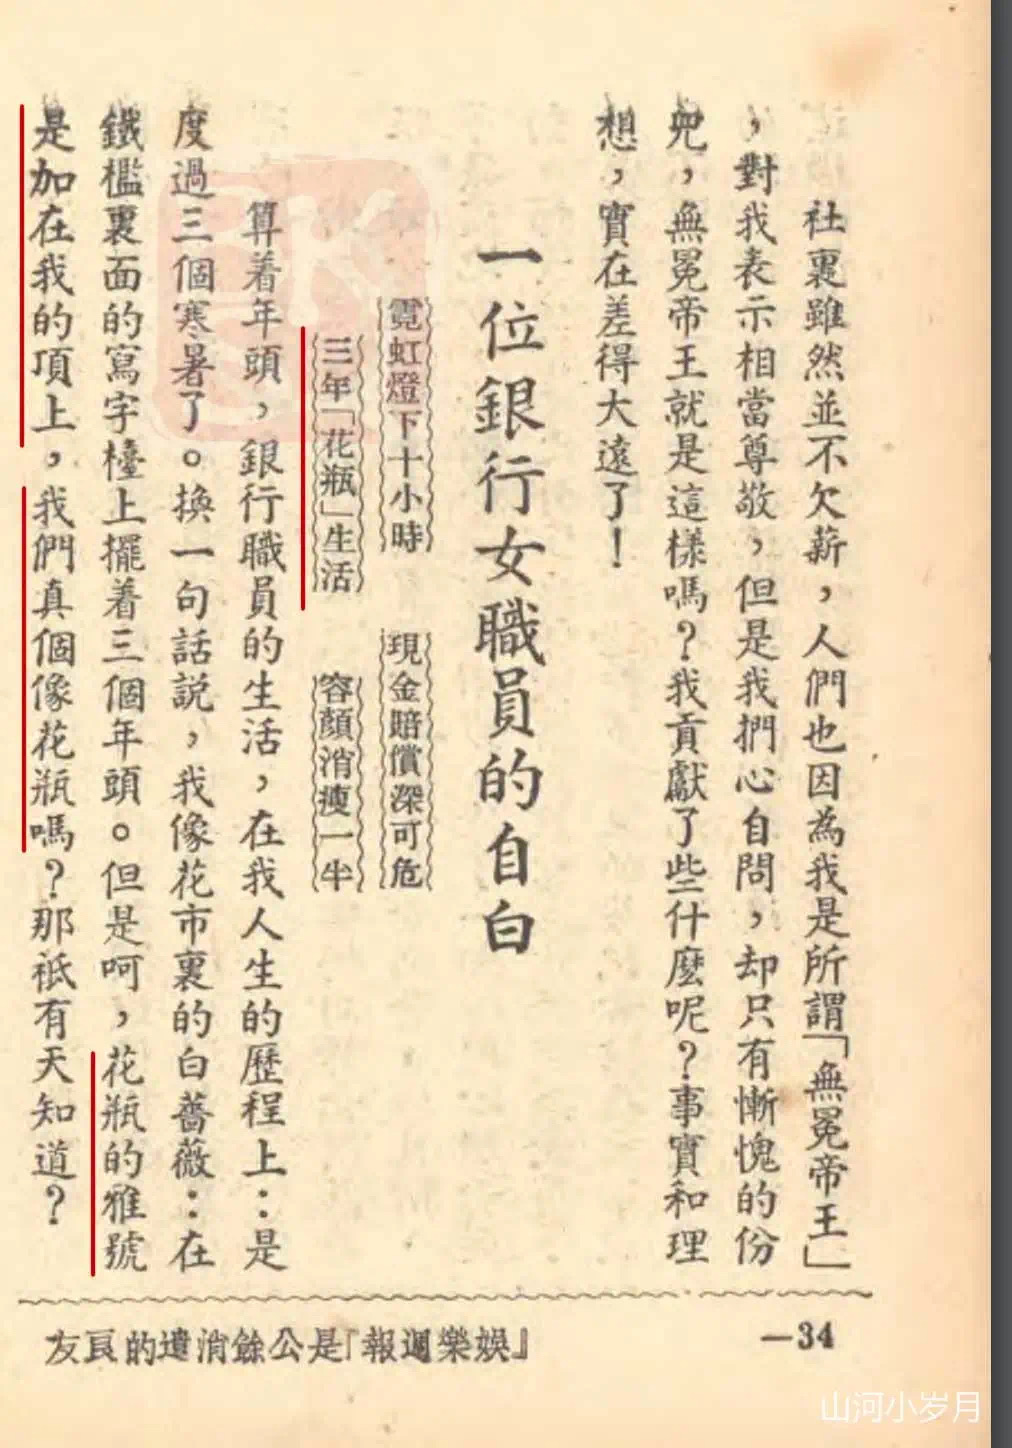 社裏雖然並不欠薪，人們也因為我是所謂「無冕帝王」
，對我表示相當尊敬，但是我捫心自問，却只有慚愧的份
兜，無冕帝王就是這樣嗎？我貢獻了些什麼呢？事實和理
想，實在差得大遠了！
一位銀行女職員的自白
霓虹燈下十小時　現金賠償深可危
三年「花瓶」生活　容顏消瘦一半
算着年頭，銀行職員的生活，在我人生的歷程上：是
度過三個寒暑了。換一句話説，我像花市裏的白薔薇：在
鐵檻裏面的寫字檯上擺着三個年頭。但是呵，花瓶的雅號
是加在我的項上，我們真個像花瓶嗎？那祇有天知道？
友良的遣消餘公是「報週樂娛」
—34
山河小岁月